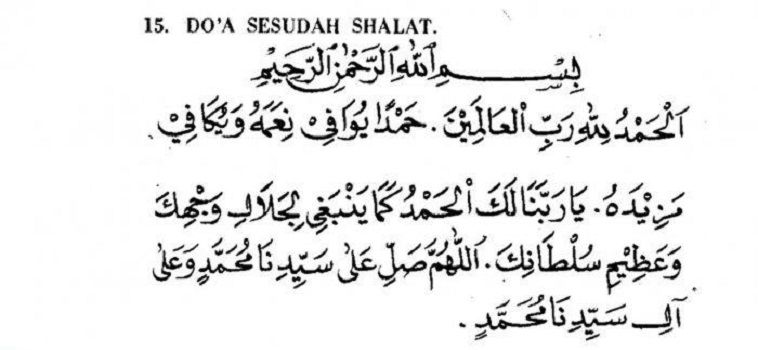 15. DO'A SESUDAH SHALAT.
بِسْـــمِ اللهِ الرَّحْمٰنِ الرَّحِيْمِ
اَلْحَمْدُ لِلهِ رَبِّ الْعَالَمِيْنَ. حَمْدًا يُوَافِيْ نِعَمَهُ وَيُكَافِيْ
مَزِيْدَهُ. يَارَبَّنَا لَكَ الْحَمْدُ كَمَا يَنْبَغِيْ لِجَلَالِ وَجْهِكَ
وَعَظِيْمِ سُلْطَانِكَ. اَللّٰهُمَّ صَلِّ عَلٰى سَيِّدِنَا مُحَمَّدٍ وَعَلٰى
آلِ سَيِّدِنَا مُحَمَّدٍ.